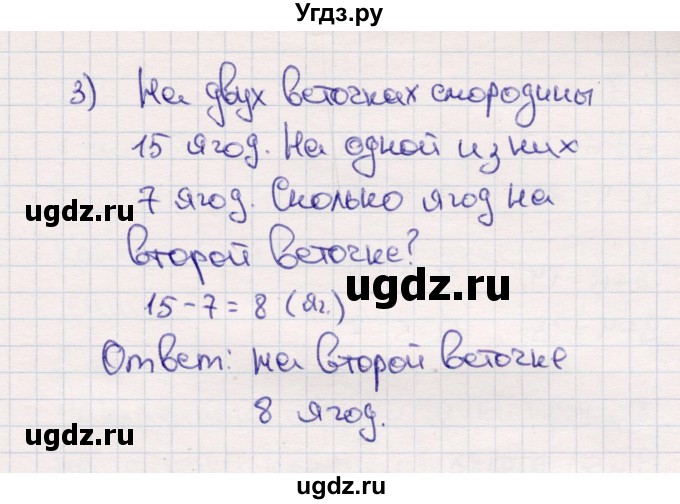 Угдз.ру
3) На двух веточках смородины
15 ягод. На одной из них
7 ягод. Сколько ягод на
ugdz.ru
второй веточке?
ugdz.ru
15-7=8 (яг.)
Ответ: на второй веточке
8 ягод.
ugdz.ru
ugdz.ru